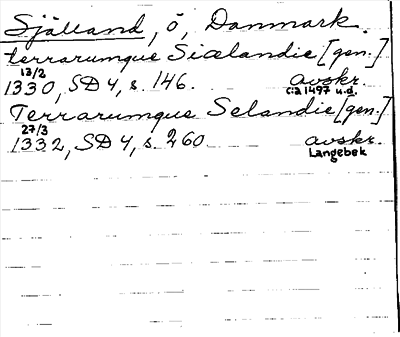 Själland, ö, Danmark.
terrarumque Siælandie [gen.]
13/2
1330, SD 4, s. 146. avskr.
ca 1497 u.d.
Terrarumque Selandie [gen.]
27/3
1332, SD 4, s. 260 avskr.
Langebek